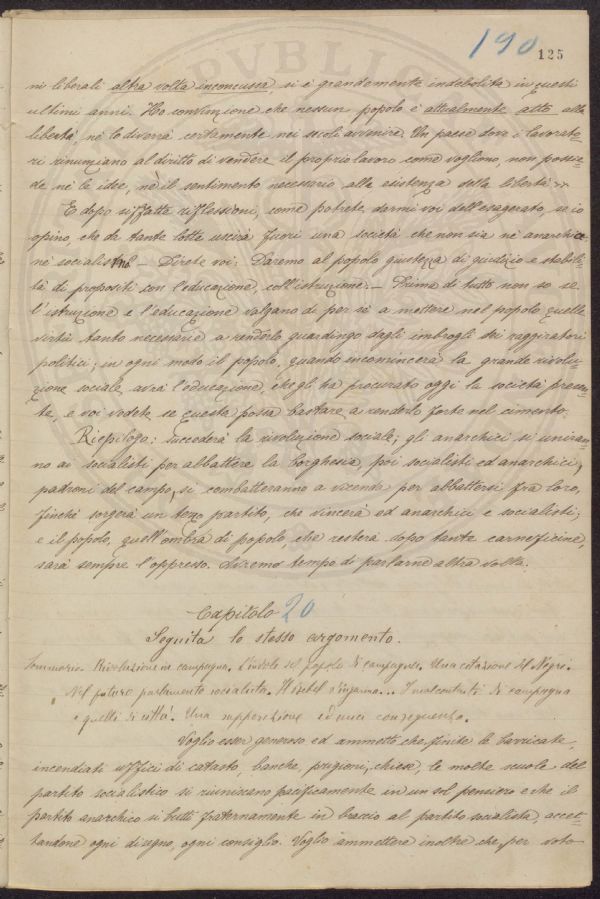 190
125
ni liberali altra volta inconcussa, si è grandemente indebolita in questi
ultimi anni. Ho convinzione che nessun popolo è attualmente atto alla
libertà, nè lo diverrà certamente nei secoli avvenire. Un paese dove i lavorato-
ri rinunziano al diritto di vendere il proprio lavoro come vogliono, non possie-
de nè le idee, nè il sentimento necessario alla esistenza della libertà
E dopo siffatte riflessioni, come potrete darmi voi dell'esagerato, se io
opino, che da tante lotte uscirà fuori una società che non sia nè anarchica
nè socialistica — Direte voi: Daremo al popolo giustezza di giudizio e stabili-
tà di propositi con l'educazione, coll'istruzione. — Prima di tutto non so se
l'istruzione e l'educazione valgano di per sè a mettere nel popolo quelle
virtù tanto necessarie a renderlo guardingo dagli imbrogli dei raggiratori
politici; in ogni modo il popolo, quando incomincerà la grande rivolu-
zione sociale, avrà l'educazione, che gli ha procurato oggi la società presen-
te, e voi vedete se questa possa bastare a renderlo forte nel cimento.
Riepilogo: succederà la rivoluzione sociale; gli anarchici si uniran-
no ai socialisti per abbattere la borghesia, poi socialisti ed anarchici,
padroni del campo, si combatteranno a vicenda per abbattersi fra loro,
finchè sorgerà un terzo partito, che vincerà ed anarchici e socialisti;
e il popolo, quell'ombra di popolo, che resterà dopo tante carneficine,
sarà sempre l'oppresso. Avremo tempo di parlarne altra volta.
Capitolo 20
Seguita lo stesso argomento.
Sommario. Rivoluzione in campagna. L'indole del popolo di campagna. Una citazione del Negri.
Nel futuro parlamento socialista. Il Bebel s'inganna... I malcontenti di campagna
e quelli di città. Una supposizione ed una conseguenza.
Voglio esser generoso ed ammetto che, finite le barricate,
incendiati uffici di catasto, banche, prigioni, chiese, le molte scuole del
partito socialistico si riuniscano pacificamente in un sol pensiero e che il
partito anarchico si butti fraternamente in braccio al partito socialista, accet-
tandone ogni disegno, ogni consiglio. Voglio ammettere inoltre che, per voto